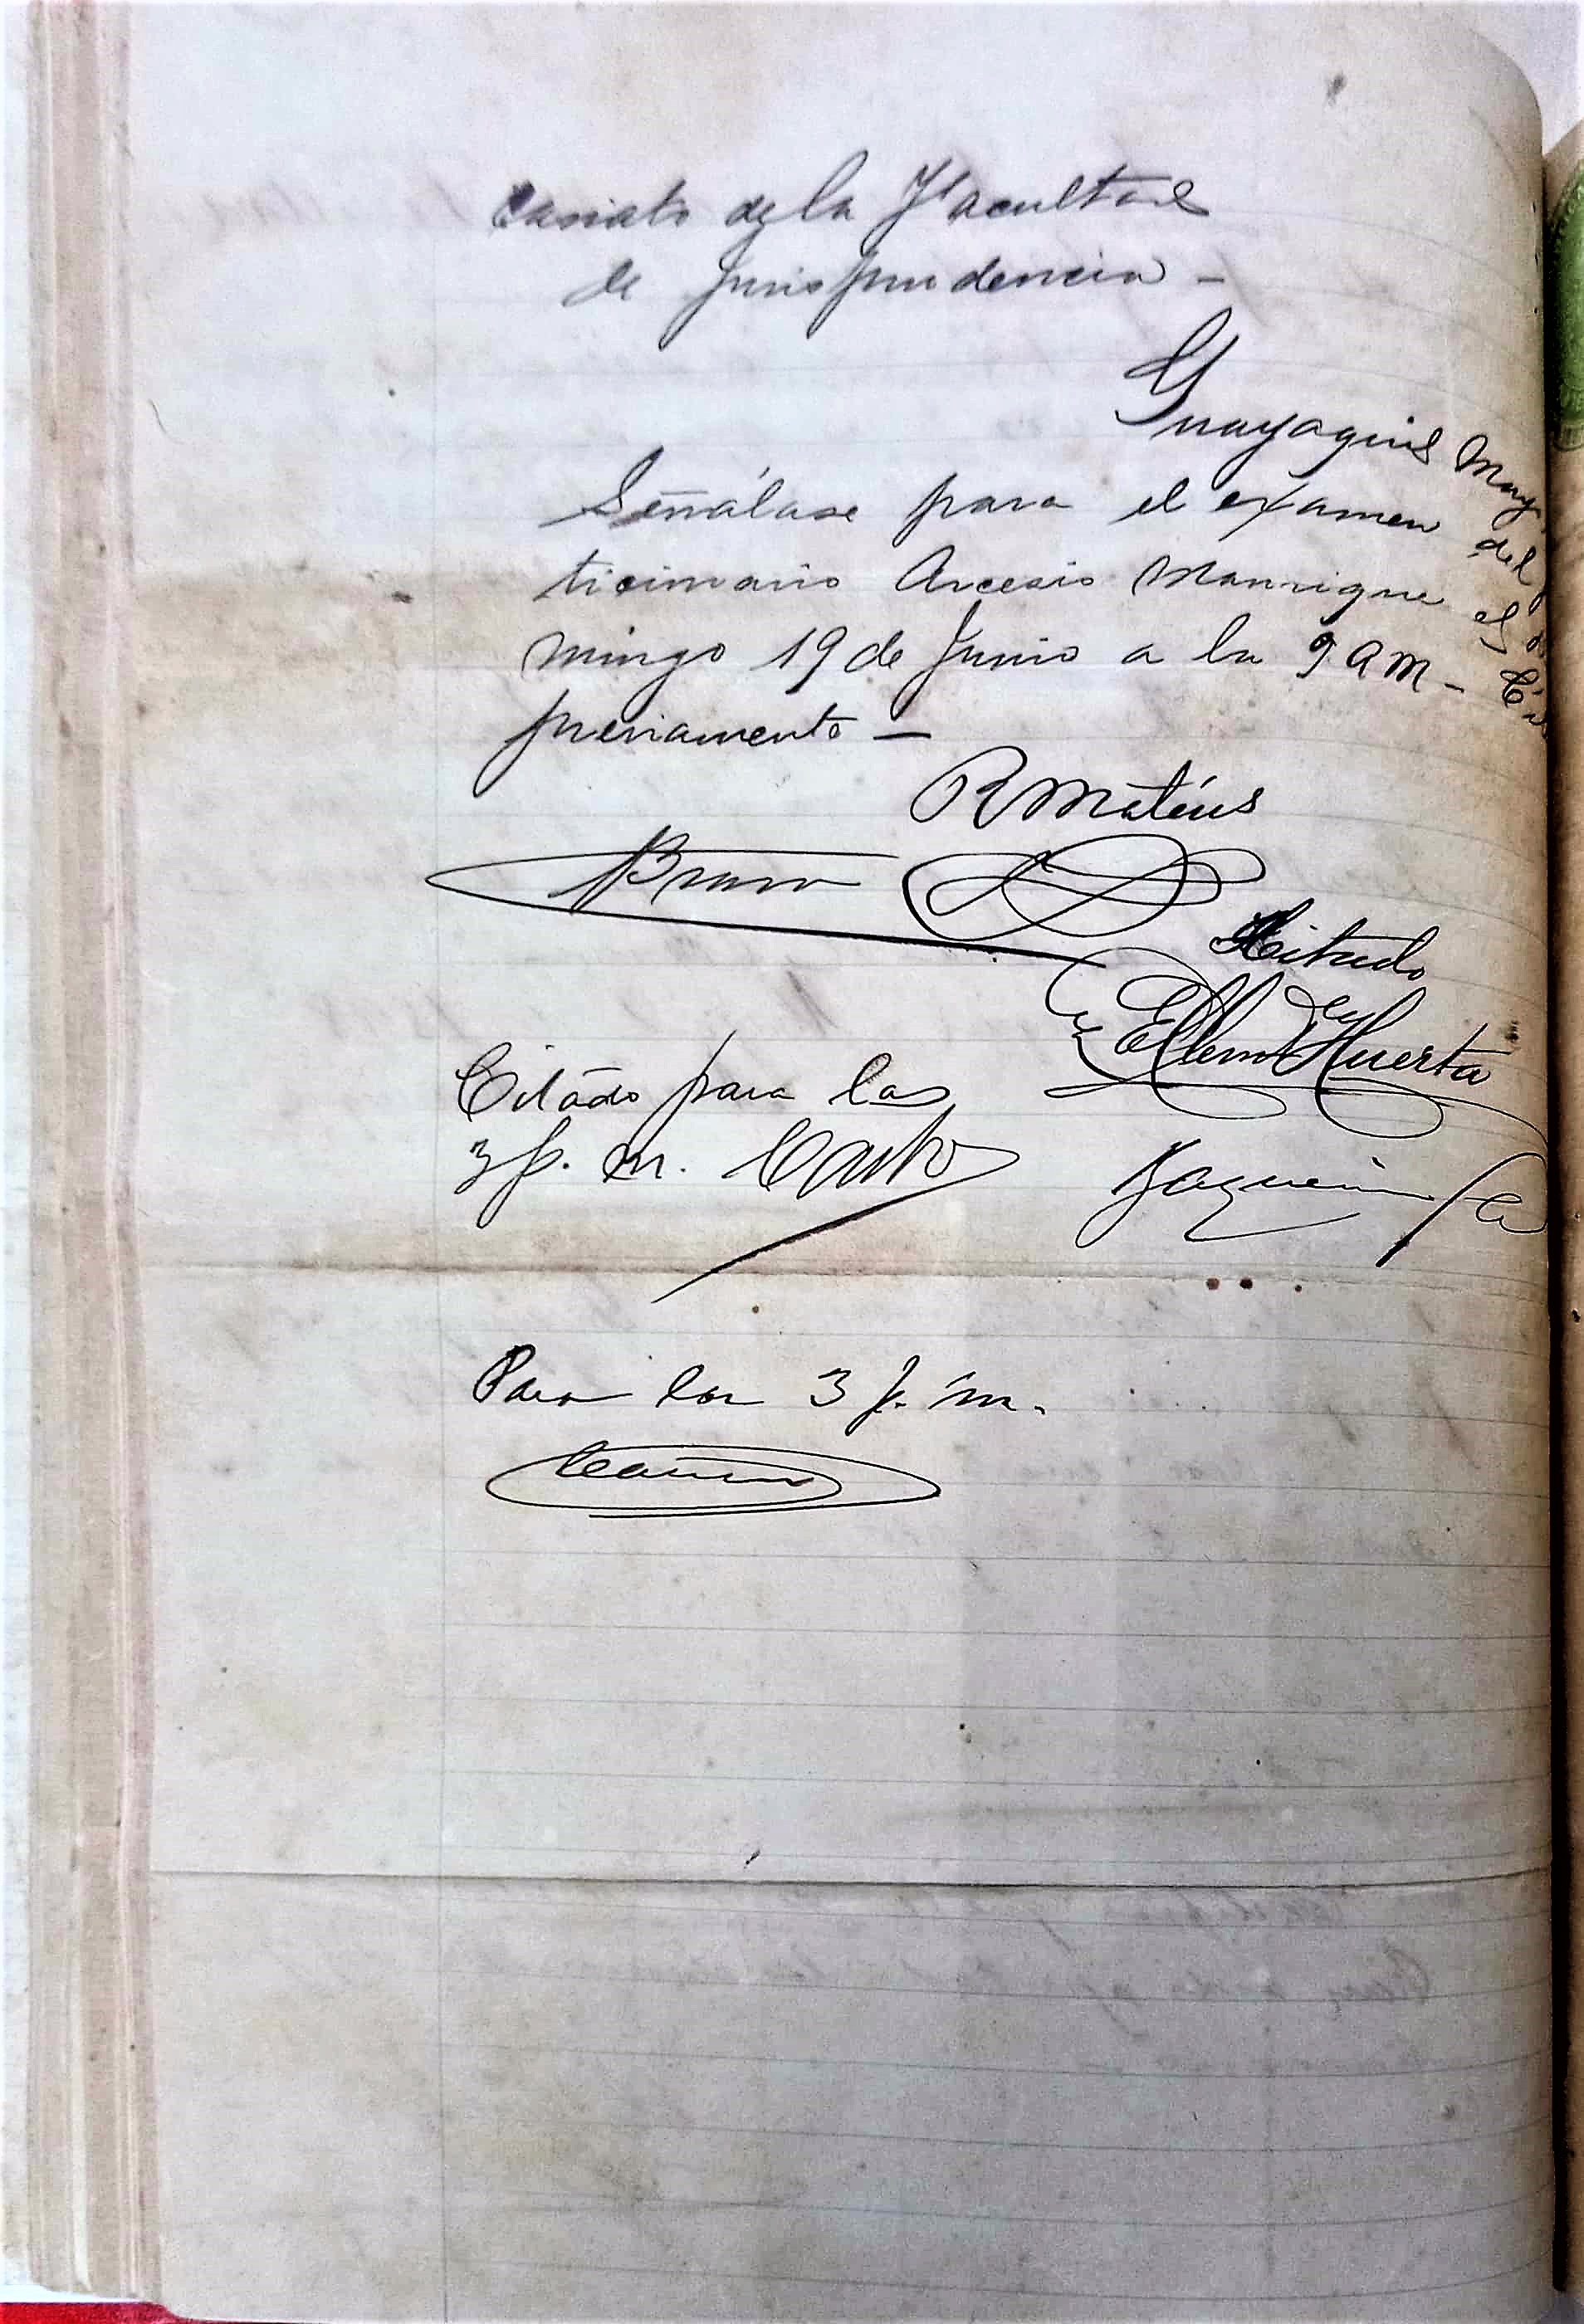 canato de la Facultad
de Jurisprudencia -
Guayaquil May
Señálase para el examen del
ticionario Arcesio Manrique el
mingo 19 de Junio a la 9 A M -
previamente -
R Matéus
Bravo
Citado
Huerta
Citado para las
3 p. m. Castro
Para las 3 p. m.